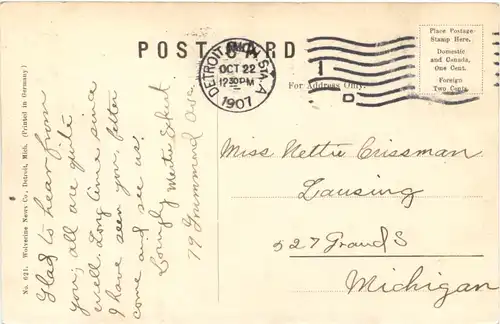 POST CARD
DETROIT, MICH. STA. A
OCT 22
12 30 PM
1907
1
D
Place Postage
Stamp Here.
Domestic
and Canada,
One Cent.
Foreign
Two Cents.
For Address Only.
No. 621. Wolverine News Co., Detroit, Mich. (Printed in Germany)
Glad to hear from
you, all are quite
well. Long time since
I have seen you, better
come and see us.
Lovingly Mertie
79
Miss Nettie Crissman
Lansing
527 Grand S
Michigan